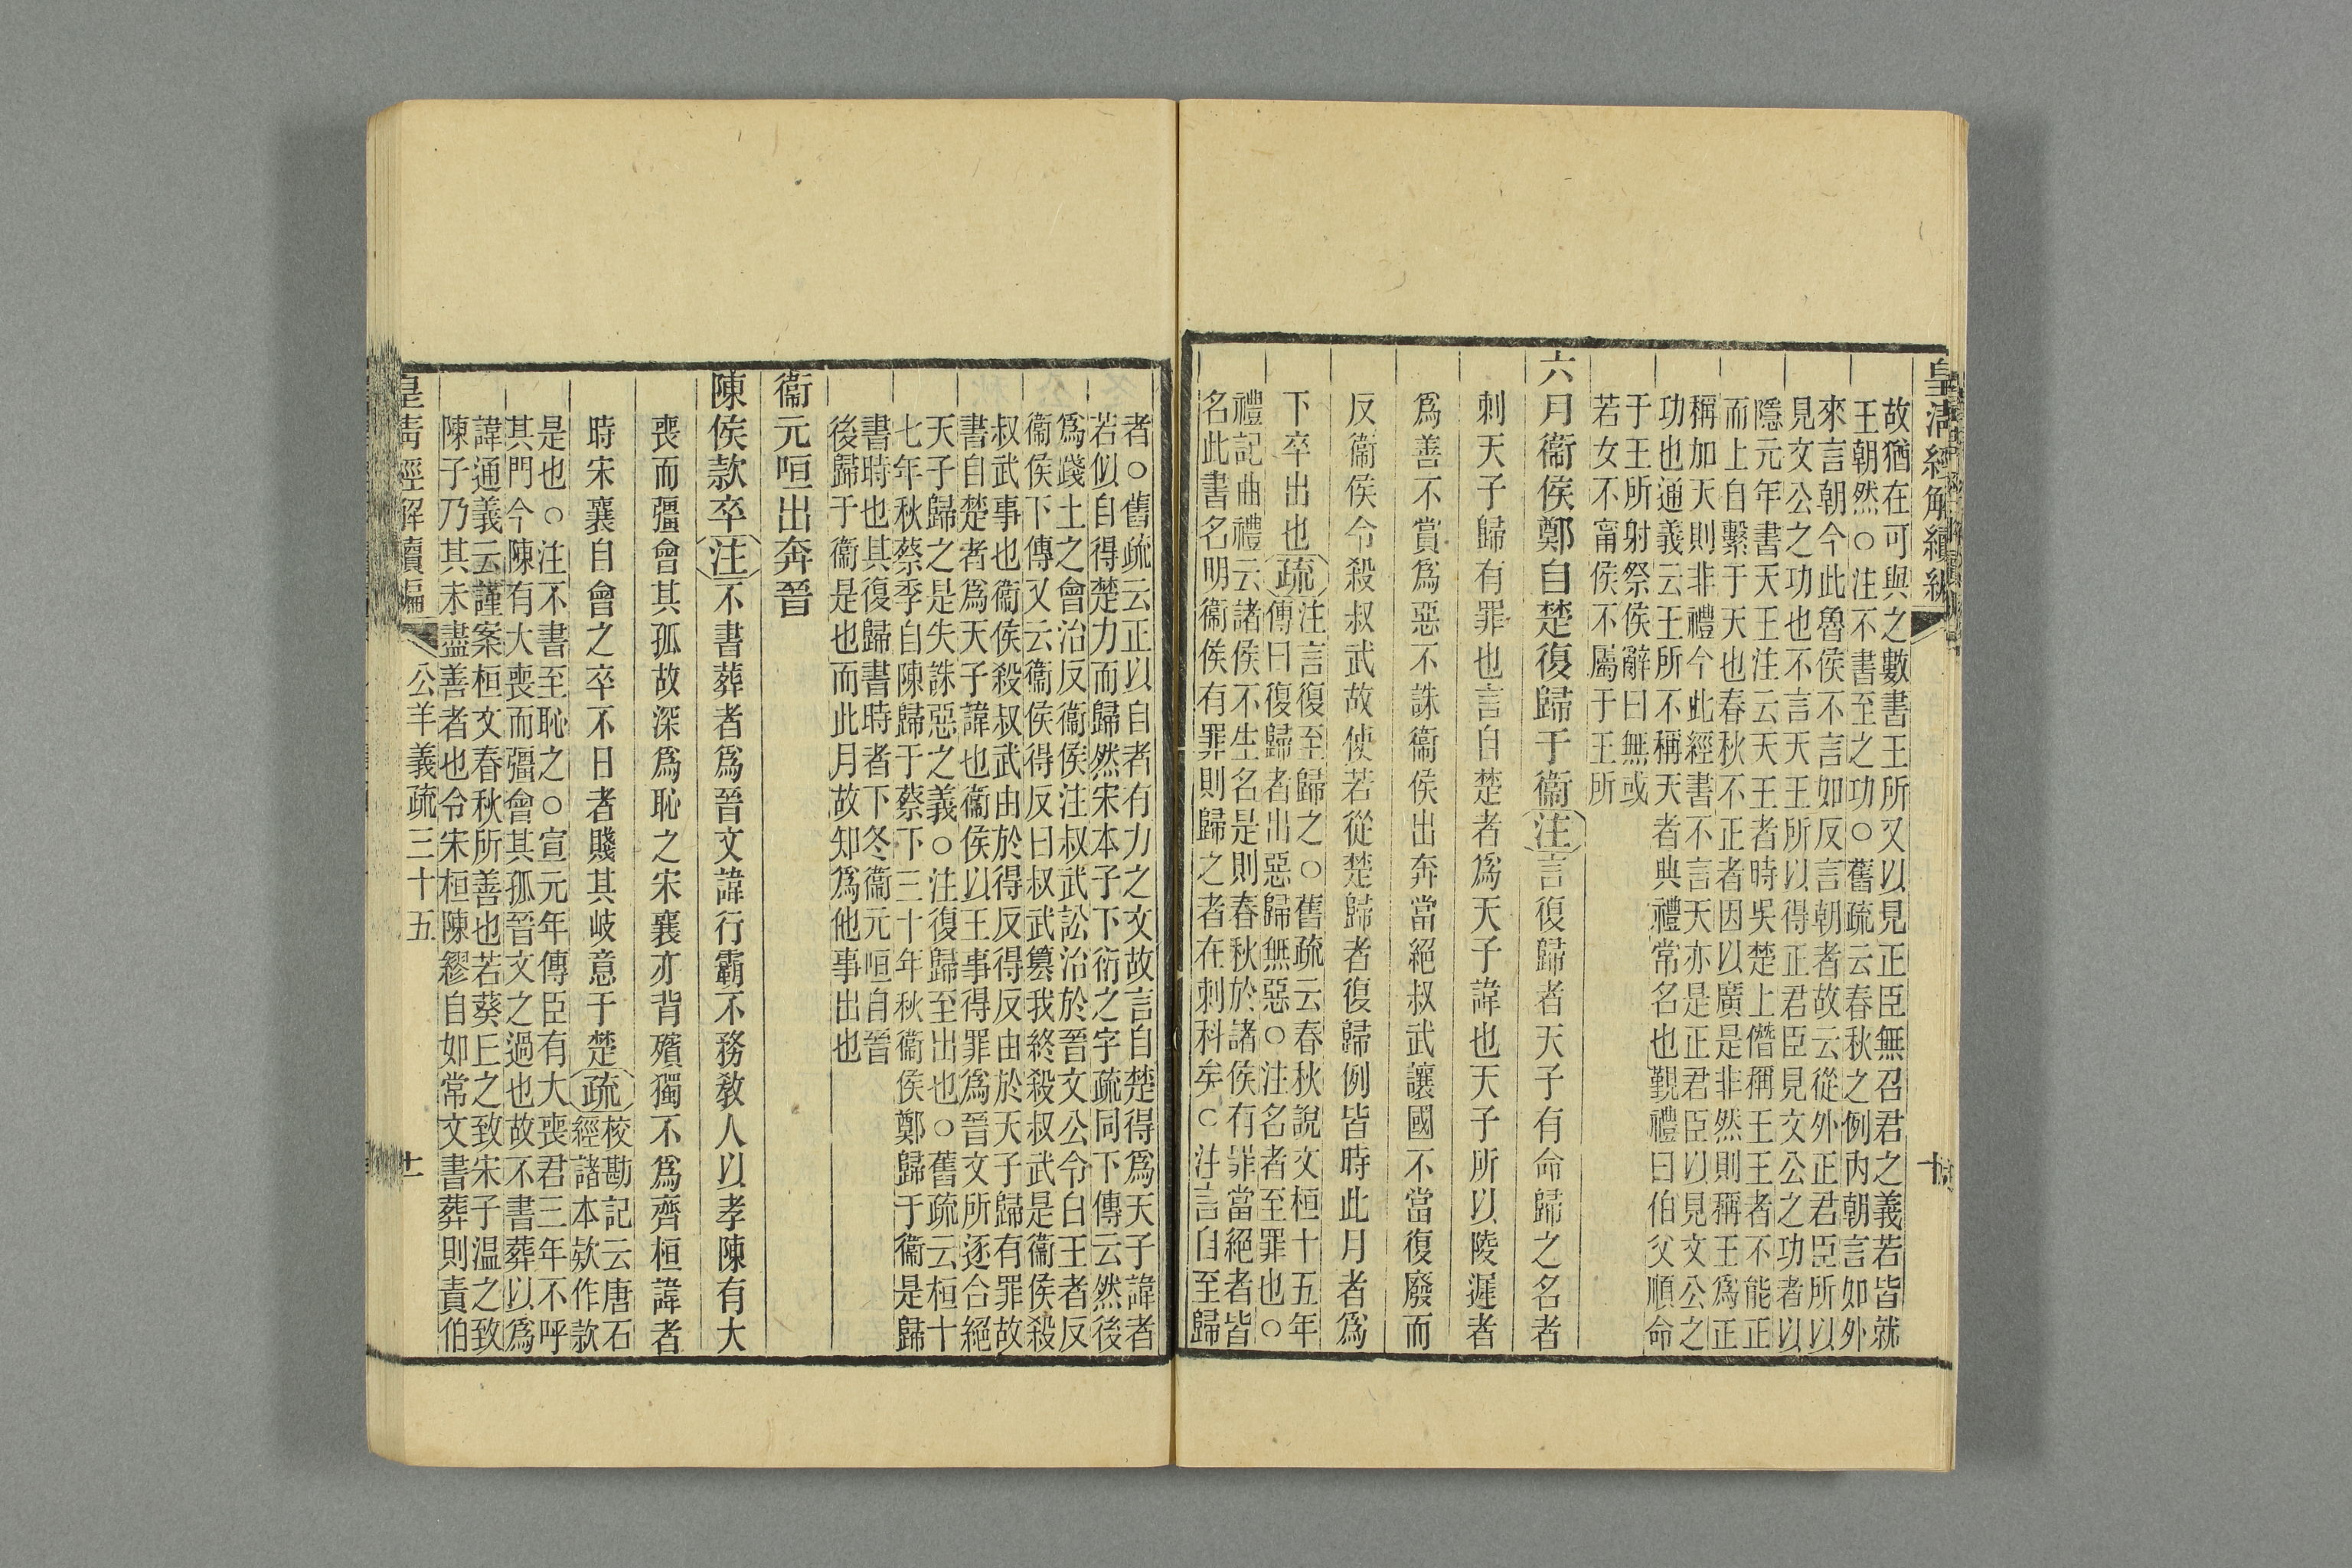 皇清經解續編
故猶在可與之數書王所又以見正臣無召君之義若皆就
王朝然○注不書至之功○舊疏云春秋之例內朝言如外
來言朝今此魯侯不言如反言朝者故云從外正君臣所以
見文公之功也不言天王所以得正君臣見文公之功者以
隱元年書天王注云天王者時吳楚上僭稱王王者不能正
而上自繫于天也春秋不正者因以廣是非然則稱王爲正
稱加天則非禮今此經書不言天亦是正君臣以見文公之
功也通義云王所不稱天者典禮常名也覲禮曰伯父順命
于王所射祭侯辭曰無或
若女不甯侯不屬于王所
六月衞侯鄭自楚復歸于衞注言復歸者天子有命歸之名者
刺天子歸有罪也言自楚者爲天子諱也天子所以陵遲者
爲善不賞爲惡不誅衞侯出奔當絕叔武讓國不當復廢而
反衞侯令殺叔武故使若從楚歸者復歸例皆時此月者爲
下卒出也疏注言復至歸之○舊疏云春秋說文桓十五年
傳曰復歸者出惡歸無惡○注名者至罪也○
禮記曲禮云諸侯不生名是則春秋於諸侯有罪當絕者皆
名此書名明衞侯有罪則歸之者在刺科矣○注言自至歸
者○舊疏云正以自者有力之文故言自楚得爲天子諱者
若似自得楚力而歸然宋本子下衍之字疏同下傳云然後
爲踐土之會治反衞侯注叔武訟治於晉文公令白王者反
衞侯下傳又云衞侯得反曰叔武簒我終殺叔武是衞侯殺
叔武事也衞侯殺叔武由於得反得反由於天子歸有罪故
書自楚者爲天子諱也衞侯以王事得罪爲晉文所逐合絕
天子歸之是失誅惡之義○注復歸至出也○舊疏云桓十
七年秋蔡季自陳歸于蔡下三十年秋衞侯鄭歸于衞是歸
書時也其復歸書時者下冬衞元咺自晉
後歸于衞是也而此月故知爲他事出也
衞元咺出奔晉
陳侯款卒注不書葬者爲晉文諱行霸不務敎人以孝陳有大
喪而彊會其孤故深爲恥之宋襄亦背殯獨不爲齊桓諱者
時宋襄自會之卒不日者賤其岐意于楚疏校勘記云唐石
經諸本欵作款
是也○注不書至恥之○宣元年傳臣有大喪君三年不呼
其門今陳有大喪而彊會其孤晉文之過也故不書葬以爲
諱通義云謹案桓文春秋所善也若葵㠯之致宋子溫之致
陳子乃其未盡善者也令宋桓陳繆自如常文書葬則責伯
皇清經解續編
公羊義疏三十五
十一